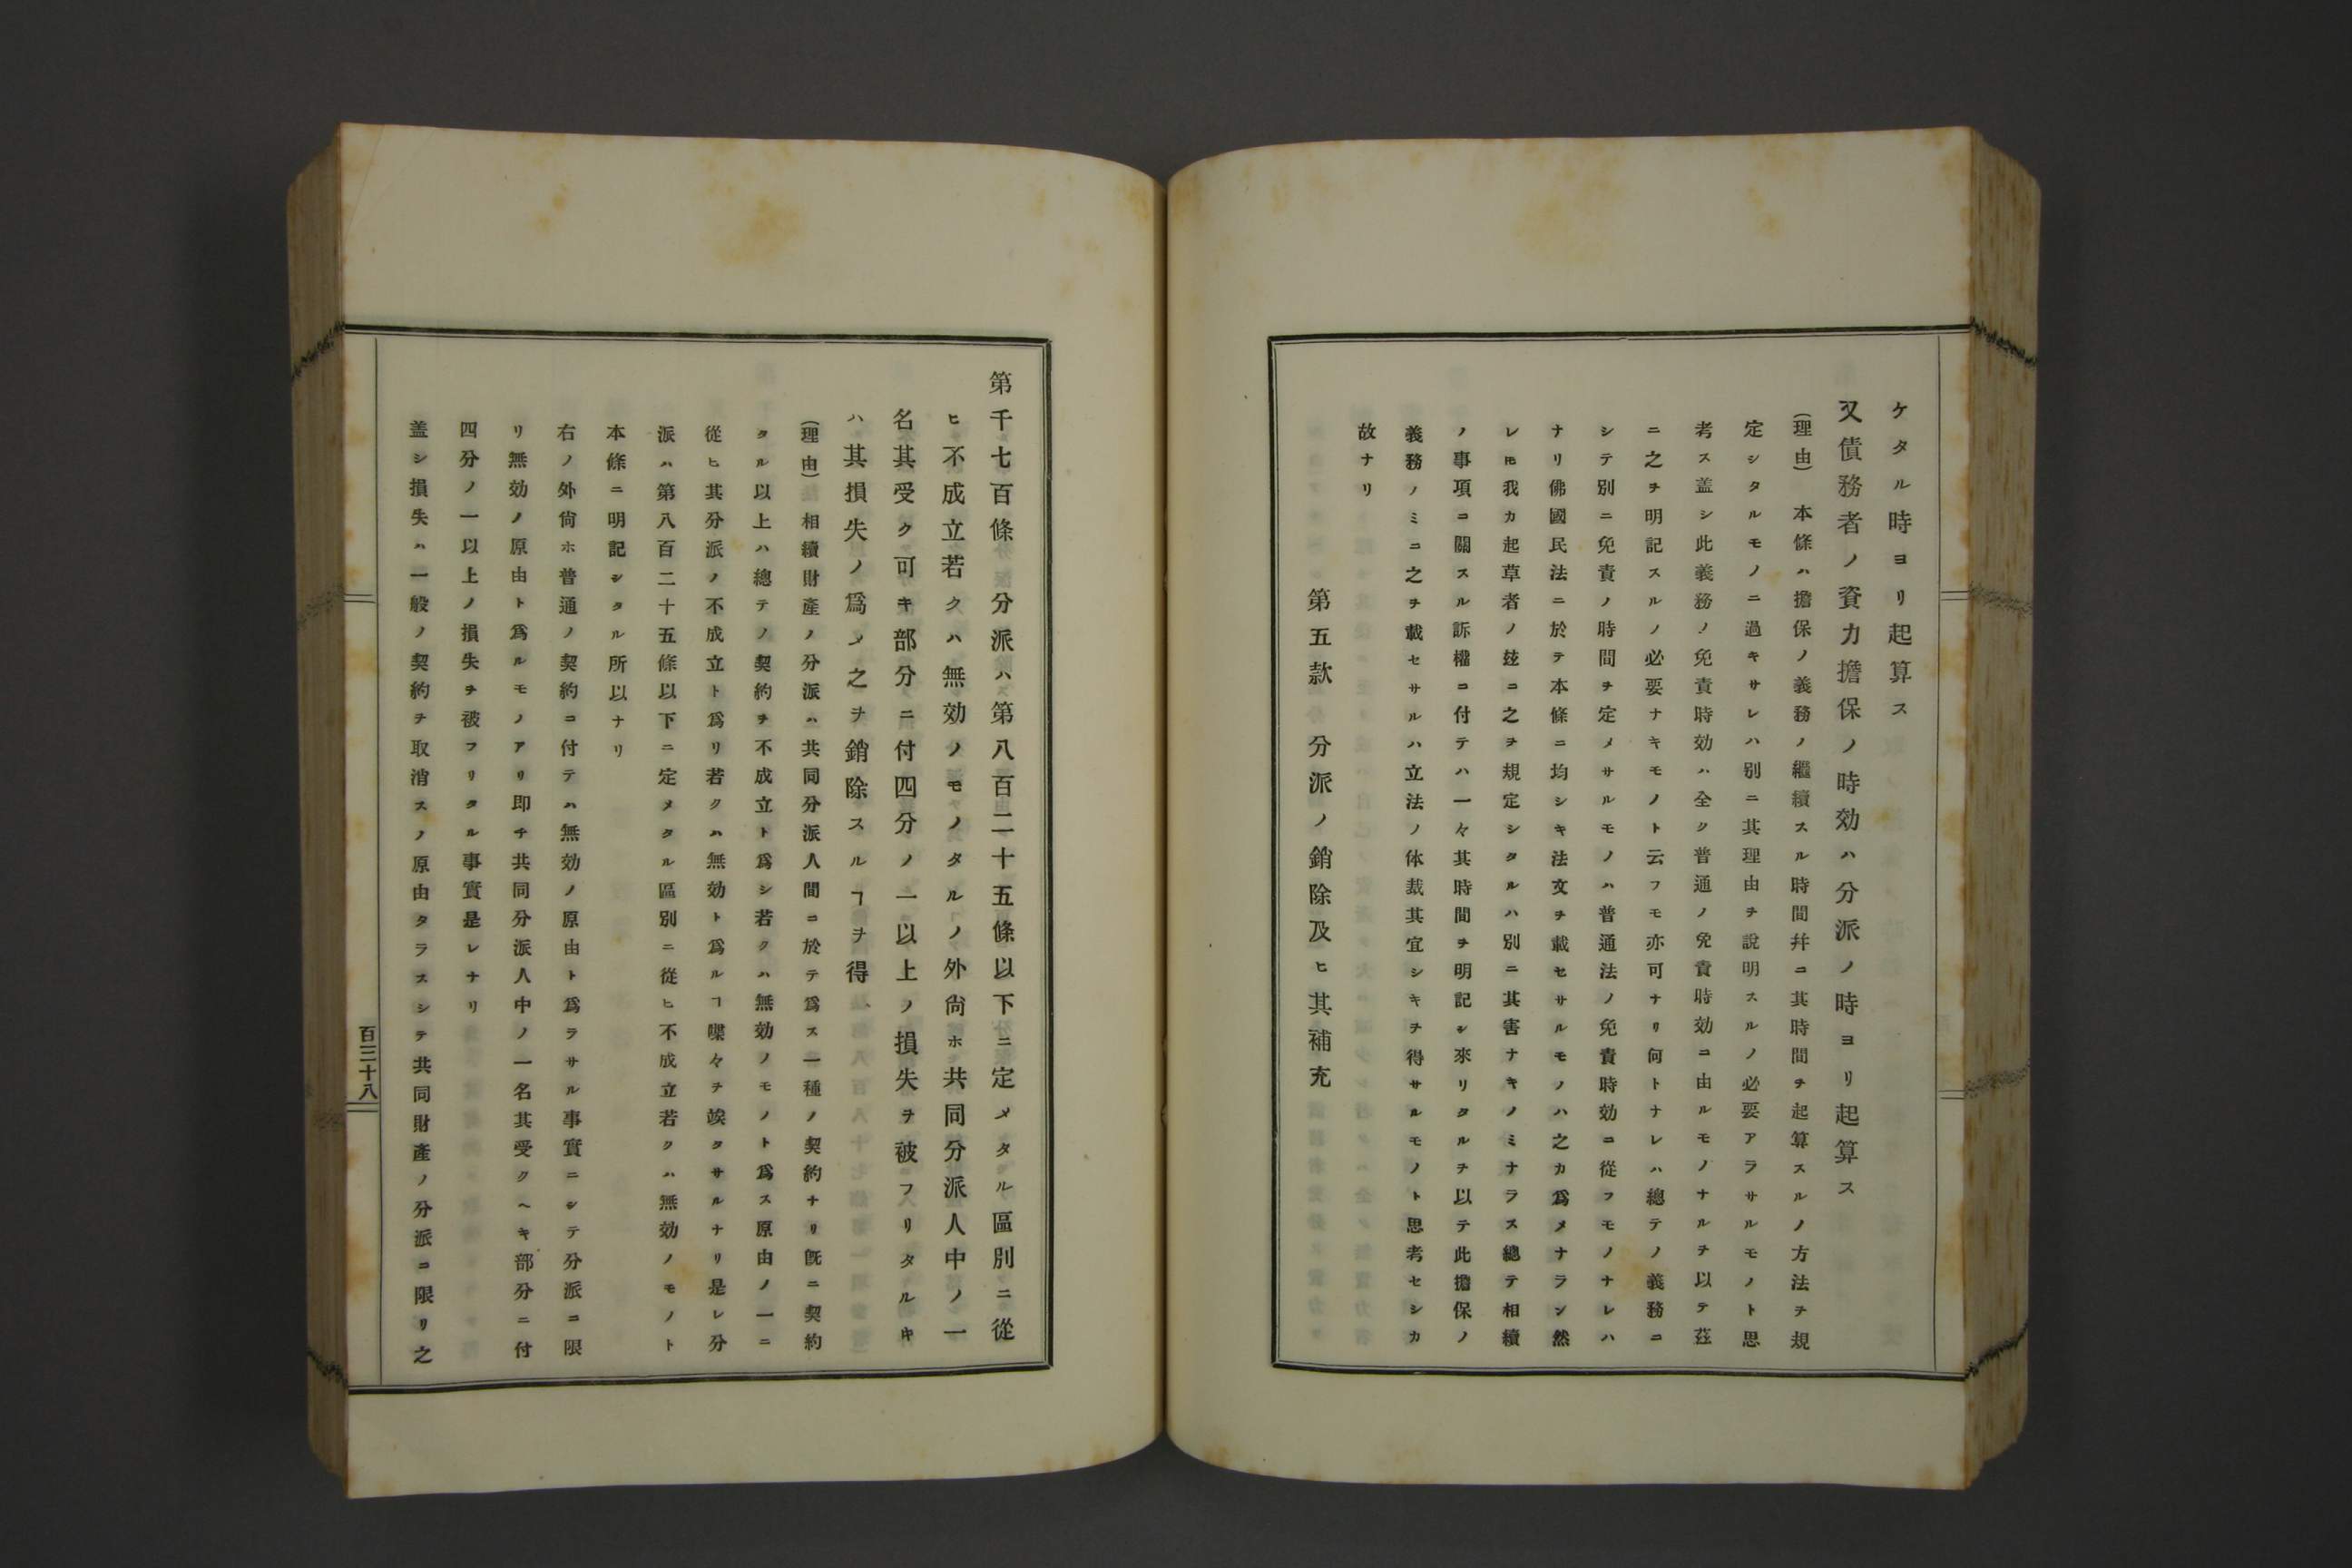 ケタル時ヨリ起算ス
又債務者ノ資力擔保ノ時効ハ分派ノ時ヨリ起算ス
(理由)本條ハ擔保ノ義務ノ繼續スル時間幷ニ其時間ヲ起算スルノ方法ヲ規
定シタルモノニ過キサレハ別ニ其理由ヲ說明スルノ必要アラサルモノト思
考ス盖シ此義務ノ免責時効ハ全ク普通ノ免責時効ニ由ルモノナルヲ以テ茲
ニ之ヲ明記スルノ必要ナキモノト云フモ亦可ナリ何トナレハ總テノ義務ニ
シテ別ニ免責ノ時間ヲ定メサルモノハ普通法ノ免責時効ニ從フモノナレハ
ナリ佛國民法ニ於テ本條ニ均シキ法文ヲ載セサルモノハ之カ爲メナラン然
レ𪜈我カ起草者ノ玆ニ之ヲ規定シタルハ別ニ其害ナキノミナラス總テ相續
ノ事項ニ關スル訴權ニ付テハ一々其時間ヲ明記シ來リタルヲ以テ此擔保ノ
義務ノミニ之ヲ載セサルハ立法ノ体裁其宜シキヲ得サルモノト思考セシカ
故ナリ
第五款 分派ノ銷除及ヒ其補充
第千七百條分派ハ第八百二十五條以下ニ定メタル區別ニ從
ヒ不成立若クハ無効ノモノタルノ外尙ホ共同分派人中ノ一
名其受ク可キ部分ニ付四分ノ一以上ノ損失ヲ被フリタルキ
ハ其損失ノ爲メ之ヲ銷除スルヿヲ得
(理由)相續財產ノ分派ハ共同分派人間ニ於テ爲ス一種ノ契約ナリ旣ニ契約
タル以上ハ總テノ契約ヲ不成立ト爲シ若クハ無効ノモノト爲ス原由ノ一ニ
從ヒ其分派ノ不成立ト爲リ若クハ無効ト爲ルヿ喋々ヲ竢タサルナリ是レ分
派ハ第八百二十五條以下ニ定メタル區別ニ從ヒ不成立若クハ無効ノモノト
本條ニ明記シタル所以ナリ
右ノ外尙ホ普通ノ契約ニ付テハ無効ノ原由ト爲ラサル事實ニシテ分派ニ限
リ無効ノ原由ト爲ルモノアリ即チ共同分派人中ノ一名其受クヘキ部分ニ付
四分ノ一以上ノ損失ヲ被フリタル事實是レナリ
盖シ損失ハ一般ノ契約ヲ取消スノ原由タラスシテ共同財產ノ分派ニ限リ之
百三十八